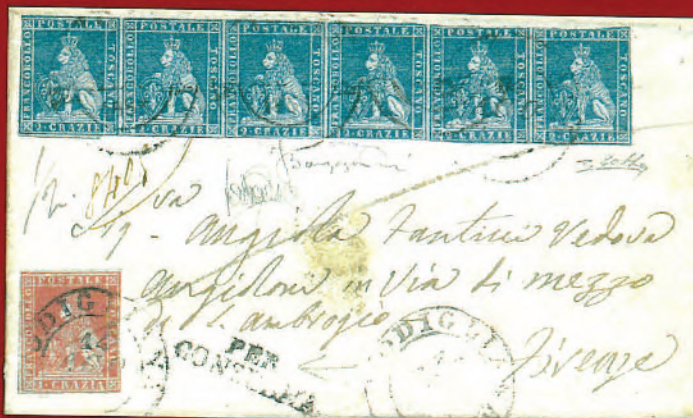 FRANCOBOLLO POSTALE TOSCANO 2 CRAZIE
FRANCOBOLLO POSTALE TOSCANO 2 CRAZIE
FRANCOBOLLO POSTALE TOSCANO 2 CRAZIE
FRANCOBOLLO POSTALE TOSCANO 2 CRAZIE
FRANCOBOLLO POSTALE TOSCANO 2 CRAZIE
FRANCOBOLLO POSTALE TOSCANO 2 CRAZIE
Angiola Fantini Vedova
Angioloni in Via di mezzo
di S. Ambrogio
Firenze
FRANCOBOLLO POSTALE TOSCANO 1 CRAZIA
ODIGLI
PER
CONSEGNA
ODIGLI